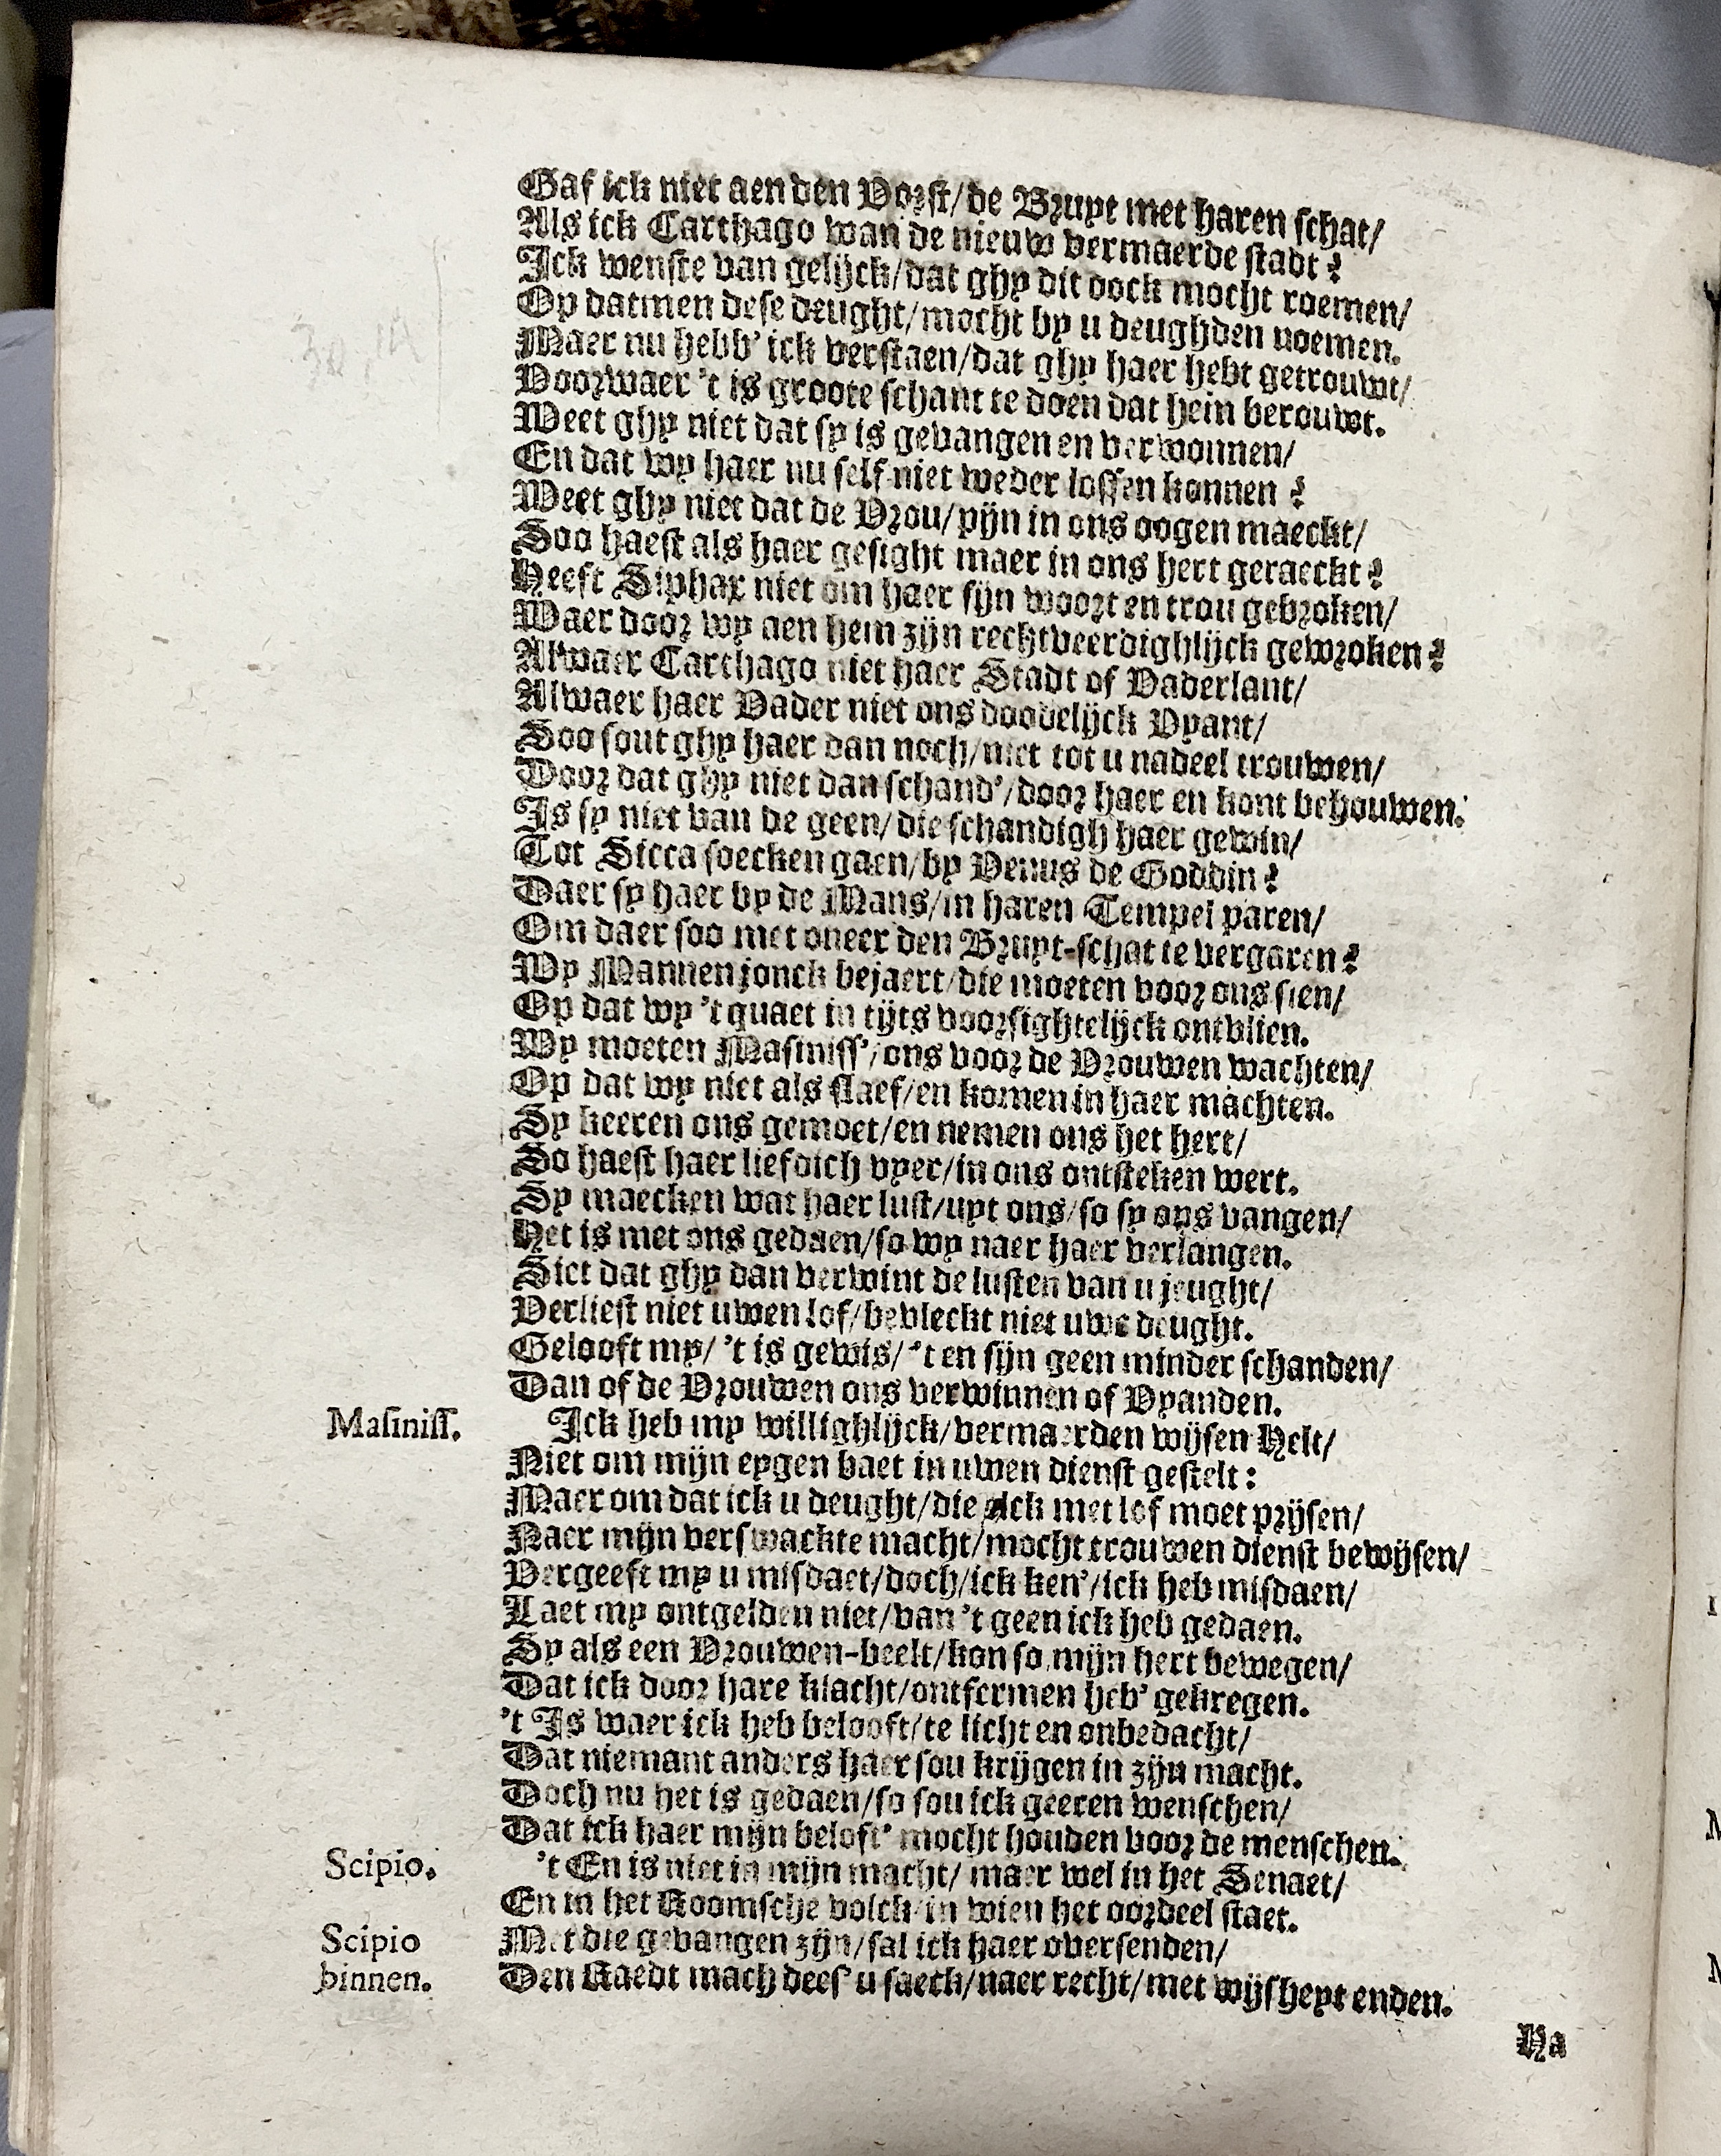 Gaf ick niet aen den Vorst/de Bruyt met haren schat/
Als ick Carthago wan de nieuw vermaerde stadt?
Ick wenste van gelijck/dat ghy dit oock mocht roemen/
Op datmen dese deught/mocht by u deughden noemen.
Maer nu hebb' ick verstaen/dat ghy haer hebt getrouwt/
Voorwaer 't is groote schant te doen dat hem berouwt.
Weet ghy niet dat sy is gevangen en verwonnen/
En dat wy haer nu self niet weder lossen konnen?
Weet ghy niet dat de Vrou/pijn in ons oogen maeckt/
Soo haest als haer gesight maer in ons hert geraeckt?
Heeft Siphax niet om haer sijn woort en trou gebroken/
Waer door wy aen hem zijn rechtveerdighlijck gewroken?
Al waer Carthago niet haer Stadt of Vaderlant/
Alwaer haer Vader niet ons doodelijck Vyant/
Soo sout ghy haer dan noch/niet tot u nadeel trouwen/
Door dat ghy niet dan schand'/door haer en kont behouwen.
Is sy niet van de geen/die schandigh haer gewin/
Tot Sicca soecken gaen/by Venus de Goddin?
Daer sy haer by de Mans/in haren Tempel paren/
Om daer soo met oneer den Bruyt-schat te vergaren?
Wy Mannen jonck bejaert/die moeten voor ons sien/
Op dat wy 't quaet in tijts voorsightelijck ontvlien.
Wy moeten Masiniss'/ons voor de Vrouwen wachten/
Op dat wy niet als slaef/en komen in haer machten.
Sy keeren ons gemoet/en nemen ons het hert/
So haest haer liefdich vyer/in ons ontsteken wert.
Sy maecken wat haer lust/uyt ons/so sy ons vangen/
Het is met ons gedaen/so wy naer haer verlangen.
Siet dat ghy dan verwint de lusten van u jeught/
Verliest niet uwen lof/bevleckt niet uwe deught.
Gelooft my/ 't is gewis/ 't en sijn geen minder schanden/
Dan of de Vrouwen ons verwinnen of Vyanden.
Masiniss. Ick heb my willighlijck/vermaerden wijsen Helt/
Niet om mijn eygen baet in uwen dienst gestelt:
Maer om dat ick u deught/die ick met lof moet prijsen/
Naer mijn verswackte macht/mocht trouwen dienst bewijsen/
Vergeeft my u misdaet/doch/ick ken'/ick heb misdaen/
Laet my ontgelden niet/van 't geen ick heb gedaen.
Sy als een Vrouwen-beelt/kon so mijn hert bewegen/
Dat ick door hare klacht/ontfermen heb' gekregen.
't Is waer ick heb belooft/te licht en onbedacht/
Dat niemant anders haer sou krijgen in zijn macht.
Doch nu het is gedaen/so sou ick geeren wenschen/
Dat ick haer mijn beloft' mocht houden voor de menschen.
Scipio. 't En is niet in mijn macht/ maer wel in het Senaet/
En in het Roomsche volck/in wien het oordeel staet.
Scipio Met die gevangen zijn/sal ick haer oversenden/
binnen. Den Raedt mach dees' u saeck/naer recht/met wijsheyt enden.
Ha